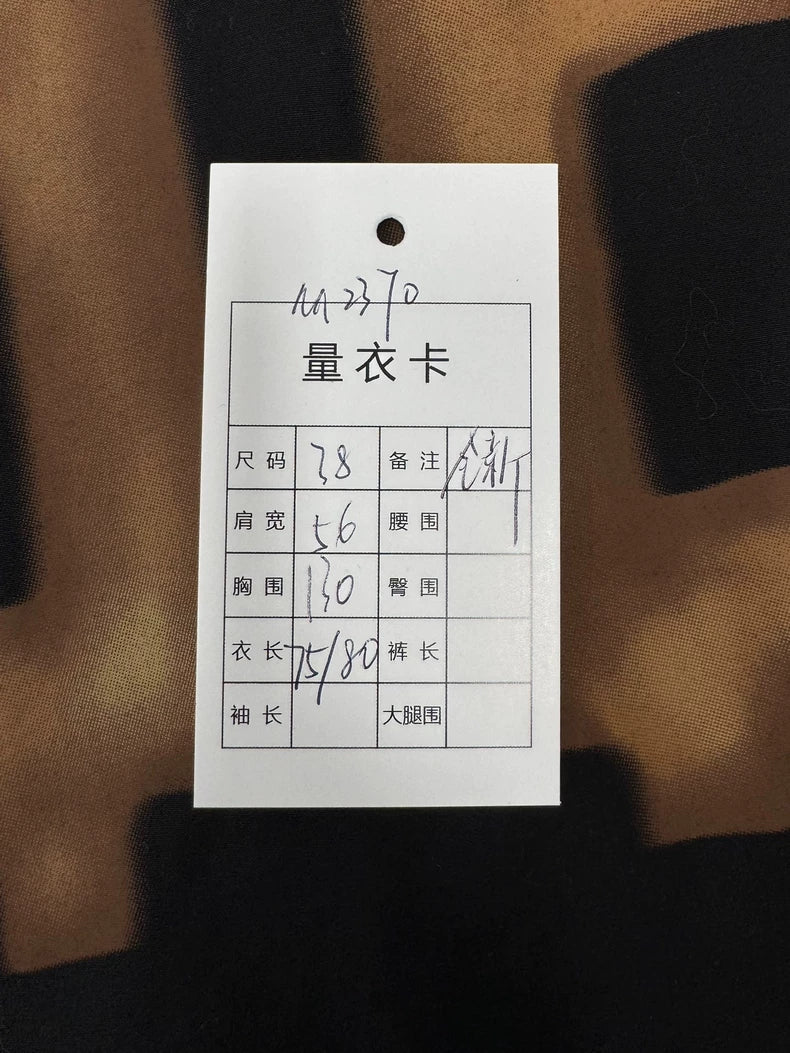 M2370
量衣卡
尺码 38 备注 全新
肩宽 56 腰围
胸围 130 臀围
衣长 75/80 裤长
袖长 大腿围